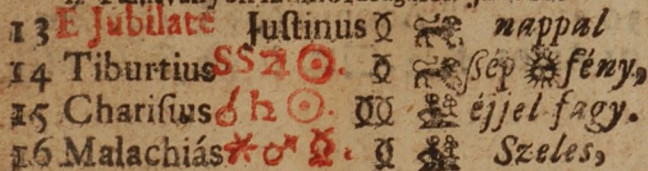 13 E Jubilate Juſtinus ☿ nappal
14 Tiburtius SS ♃ ☉. ☿ ſép ☀ fény,
15 Chariſius ☌ ♄ ☉. éjjel fagy.
16 Malachiás ⚹ ♂ ☿. ☿ Szeles,